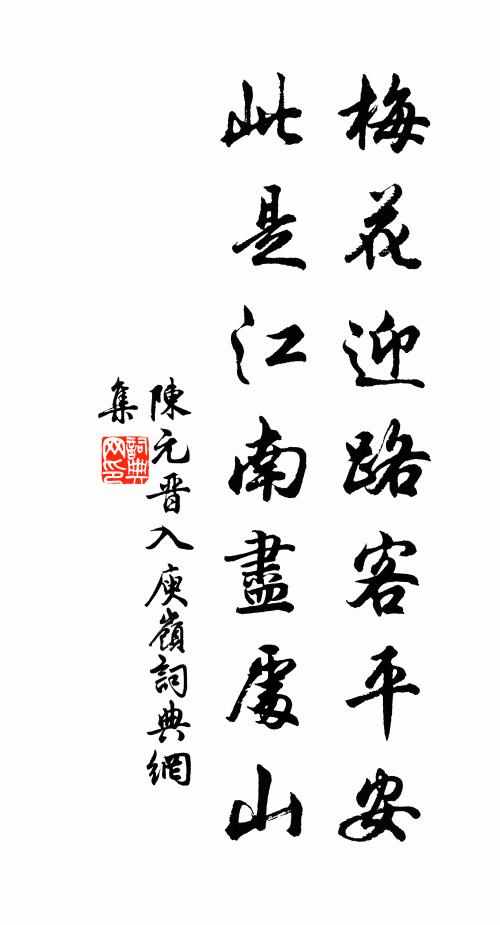 梅花迎路客平安
此是江南盡處山
陳元晉入庾嶺詞典網
集
詞典
网印